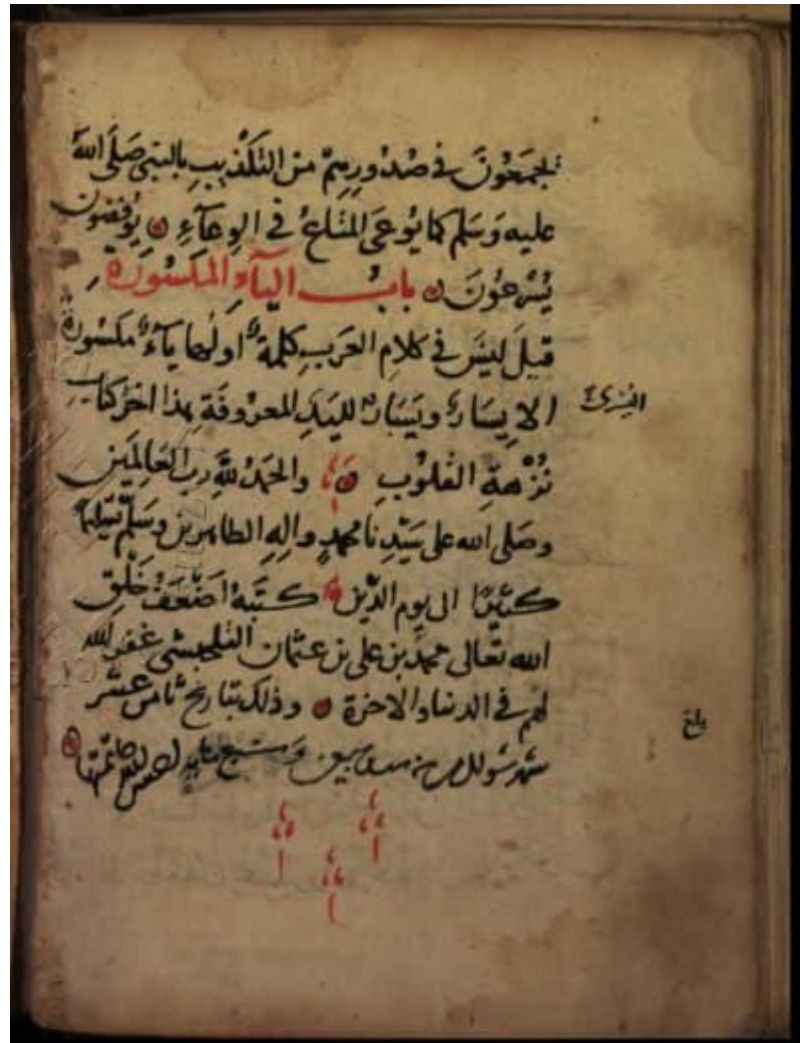 يجمعون في صُدُورِهِمْ من التكذيب بالنبى صَلَى الله
عليه وَسَلم كما يُوعَى المتَاعُ في الوِعآءِ يُوفضون
يُسْرعُونَ بابُ اليآءِ المكسُورَة
قيلَ ليسَ في كلامِ العَرَبِ كلمةٌ اولها يآءٌ مكسُورةٌ
اليُسْرىٰ
الا يِسَارٌ ويَسَارٌ لليَدِ المعرُوفَةِ هذا اخرُ كتابِ
نُزهةِ القلوُبِ والحَمدُ للهِ رب العَالِمَين
وصَلى الله على سَيّدِنا محمدٍ والِهِ الطاهرين وسَلَّم تسليمًا
كثيرًا الى يوم الدّين كتَبهُ اضعَفُ خَلْقِ
الله تعَالى محمد بن على بن عثمان غفر الله
لهم في الدنيا والاخرة وذلك بتاريخ ثامن عشر
بلغ
شهر شوال وسبع